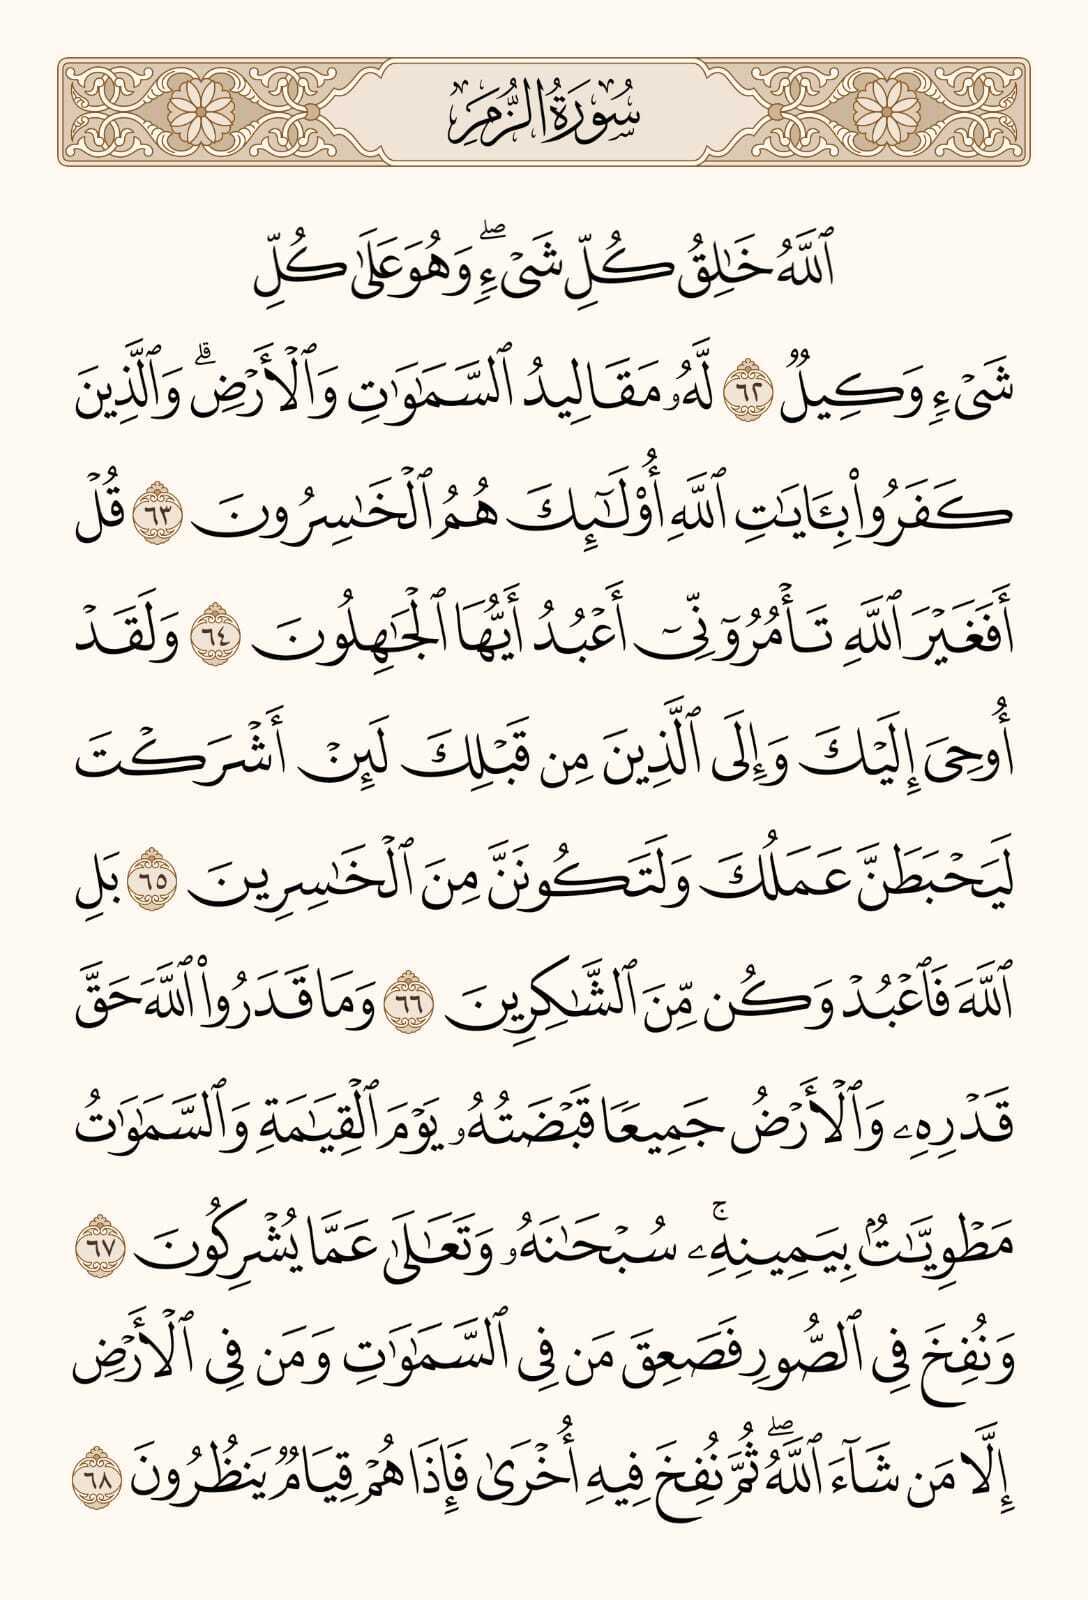 سُورَةُ الزُّمَرِ
ٱللَّهُ خَٰلِقُ كُلِّ شَىْءٖۖ وَهُوَ عَلَىٰ كُلِّ
شَىْءٖ وَكِيلٞ ٦٢ لَّهُۥ مَقَالِيدُ ٱلسَّمَٰوَٰتِ وَٱلْأَرْضِۗ وَٱلَّذِينَ
كَفَرُوا۟ بِـَٔايَٰتِ ٱللَّهِ أُو۟لَٰٓئِكَ هُمُ ٱلْخَٰسِرُونَ ٦٣ قُلْ
أَفَغَيْرَ ٱللَّهِ تَأْمُرُوٓنِّىٓ أَعْبُدُ أَيُّهَا ٱلْجَٰهِلُونَ ٦٤ وَلَقَدْ
أُوحِىَ إِلَيْكَ وَإِلَى ٱلَّذِينَ مِن قَبْلِكَ لَئِنْ أَشْرَكْتَ
لَيَحْبَطَنَّ عَمَلُكَ وَلَتَكُونَنَّ مِنَ ٱلْخَٰسِرِينَ ٦٥ بَلِ
ٱللَّهَ فَٱعْبُدْ وَكُن مِّنَ ٱلشَّٰكِرِينَ ٦٦ وَمَا قَدَرُوا۟ ٱللَّهَ حَقَّ
قَدْرِهِۦ وَٱلْأَرْضُ جَمِيعٗا قَبْضَتُهُۥ يَوْمَ ٱلْقِيَٰمَةِ وَٱلسَّمَٰوَٰتُ
مَطْوِيَّٰتُۢ بِيَمِينِهِۦۚ سُبْحَٰنَهُۥ وَتَعَٰلَىٰ عَمَّا يُشْرِكُونَ ٦٧
وَنُفِخَ فِى ٱلصُّورِ فَصَعِقَ مَن فِى ٱلسَّمَٰوَٰتِ وَمَن فِى ٱلْأَرْضِ
إِلَّا مَن شَآءَ ٱللَّهُۖ ثُمَّ نُفِخَ فِيهِ أُخْرَىٰ فَإِذَا هُمْ قِيَامٞ يَنظُرُونَ ٦٨